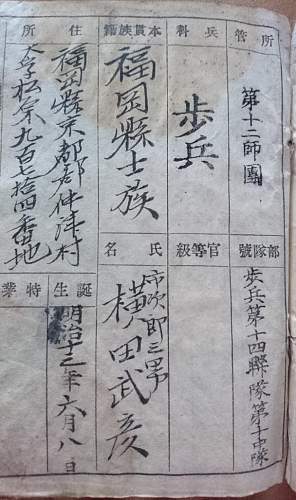 所管
第十二師團
部隊號
歩兵第十四聯隊第十中隊
兵科
歩兵
官等級
本貫族籍
福岡縣士族
氏名
市次郎三男
横田武彦
住所
福岡縣京都郡仲津村
大字松原九百七拾四番地
誕生
明治十三年六月八日
特業